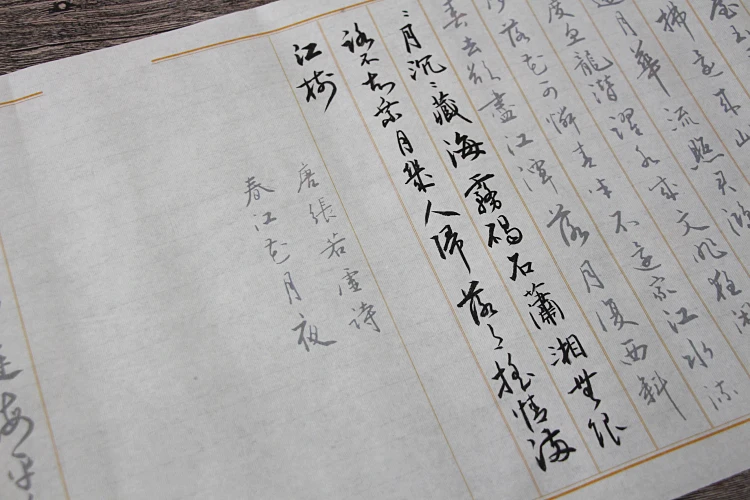 拂還來此
月華流照君鴻
度魚龍潛躍水成文昨夜閒
落花可憐春半不還家江水流
春去欲盡江潭落月復西斜
〻月沉〻藏海霧碣石瀟湘無限
路不知乘月幾人歸落〻搖情滿
江樹
唐張若虛詩
春江花月夜
連海平